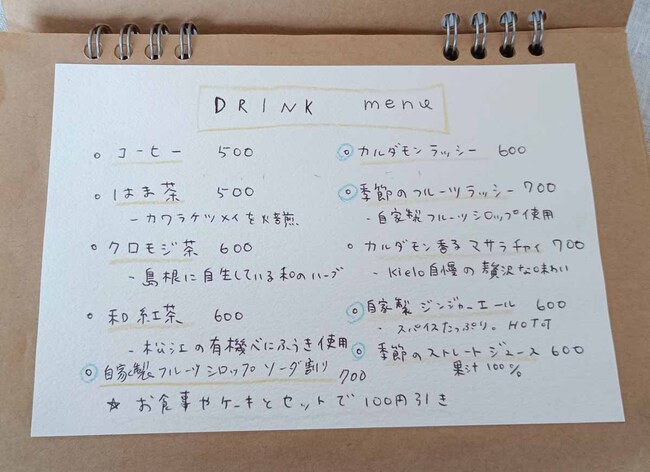 DRINK menu
コーヒー 500
はま茶 500
- カワラケツメイを焙煎
クロモジ茶 600
- 島根に自生している和のハーブ
和紅茶 600
- 松江の有機べにふうき使用
自家製フルーツシロップソーダ割り 700
カルダモンラッシー 600
季節のフルーツラッシー 700
- 自家製フルーツシロップ使用
カルダモン香るマサラチャイ 700
- Kielo自慢の贅沢な味わい
自家製ジンジャーエール 600
- スパイスたっぷり。
季節のストレートジュース 600
果汁100%
☆ お食事やケーキとセットで100円引き